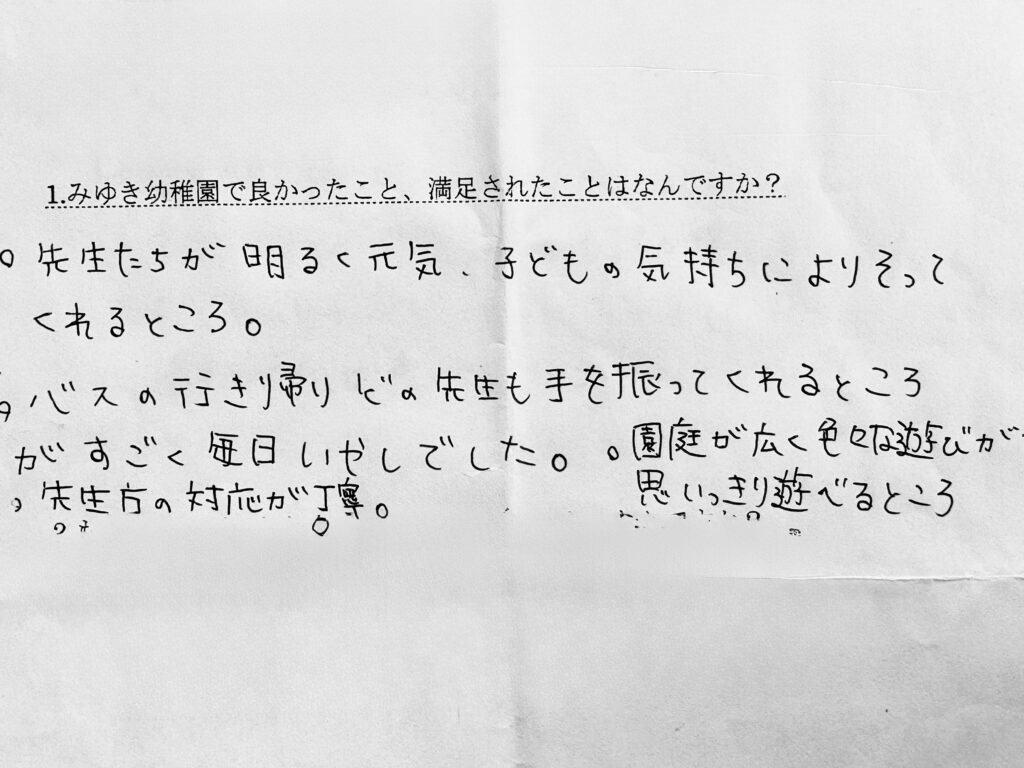 1.みゆき幼稚園で良かったこと、満足されたことはなんですか？
○ 先生たちが明るく元気、子どもの気持ちによりそって
くれるところ。
バスの行きり帰り どの先生も手を振ってくれるところ
がすごく毎日いやしでした。
○ 園庭が広く色々な遊びが
思いっきり遊べるところ
先生方の対応が丁寧。